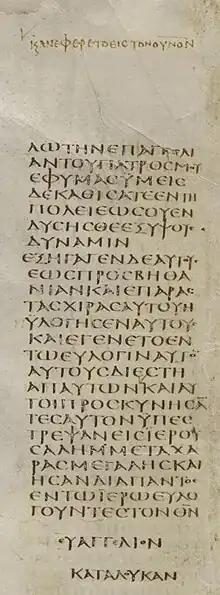 ⲕ ΑΝΕΦΕΡΕΤΟΕΙϹΤΟΝΟΥΝΟΝ
ΛΩΤΗΝΕΠΑΓΓΕΛΙ
ΑΝΤΟΥΠΑΤΡΟϹΜΟΥ
ΕΦΥΜΑϹΥΜΕΙϹ
ΔΕΚΑΘΙϹΑΤΕΕΝΤΗ
ΠΟΛΕΙΕΩϹΟΥΕΝ
ΔΥϹΗϹΘΕΕΞΥΨΟΥϹ
ΔΥΝΑΜΙΝ
ΕΞΗΓΑΓΕΝΔΕΑΥΤΟΥϹ
ΕΩϹΠΡΟϹΒΗΘΑ
ΝΙΑΝΚΑΙΕΠΑΡΑϹ
ΤΑϹΧΙΡΑϹΑΥΤΟΥΗ
ΥΛΟΓΗϹΕΝΑΥΤΟΥϹ
ΚΑΙΕΓΕΝΕΤΟΕΝ
ΤΩΕΥΛΟΓΙΝΑΥΤΟΝ
ΑΥΤΟΥϹΔΙΕϹΤΗ
ΑΠΑΥΤΩΝΚΑΙΑΥ
ΤΟΙΠΡΟϹΚΥΝΗϹΑ̅
ΤΕϹΑΥΤΟΝΥΠΕϹ
ΤΡΕΨΑΝΕΙϹΙΕΡΟΥ
ϹΑΛΗΜΜΕΤΑΧΑ
ΡΑϹΜΕΓΑΛΗϹΚΑΙ
ΗϹΑΝΔΙΑΠΑΝΤΟϹ
ΕΝΤΩΙΕΡΩΕΥΛΟ
ΓΟΥΝΤΕϹΤΟΝΘ̅Ν̅
ΕΥΑΓΓΕΛΙΟΝ
ΚΑΤΑΛΟΥΚΑΝ